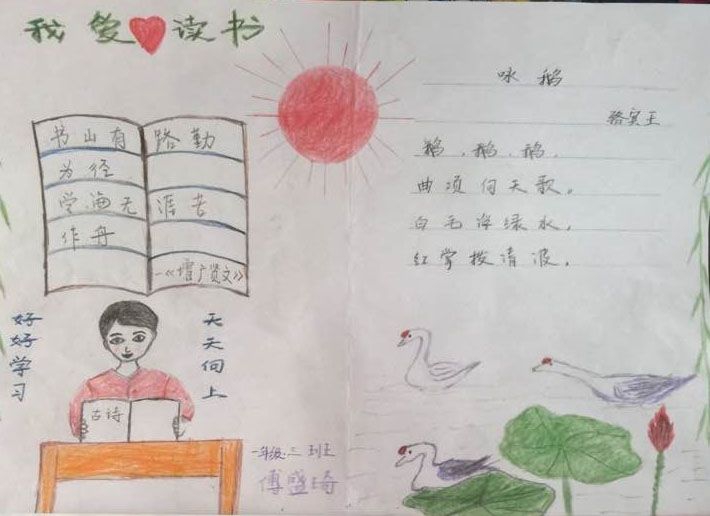 我爱读书
书山有路勤
为径
学海无涯苦
作舟
—《增广贤文》
好好学习
天天向上
古诗
一年级三班
傅盛琦
咏鹅
骆宾王
鹅，鹅，鹅，
曲项向天歌。
白毛浮绿水，
红掌拨清波。